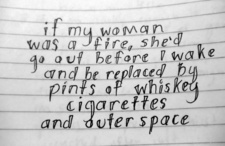 if my woman
was a fire, she'd
go out before I wake
and be replaced by
pints of whiskey
cigarettes
and outer space